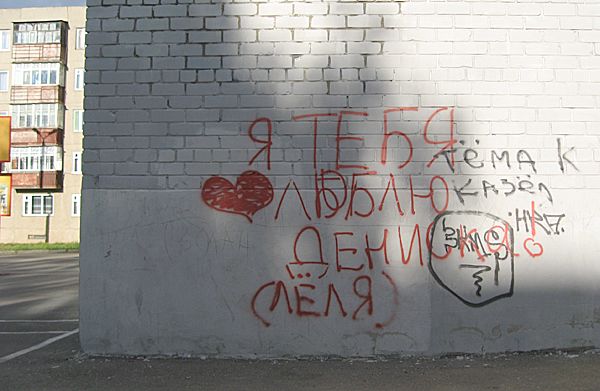 Я ТЕБЯ
ЛЮБЛЮ
ДЕНИСКА!
(ЛЁЛЯ)
тёма к
КАЗЁЛ